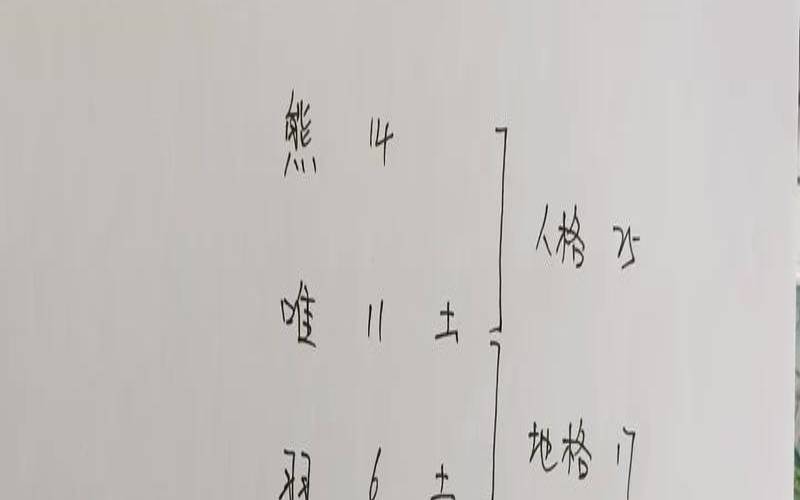 熊 14
人格 25
唯 11 土
地格 17
羽 6 土